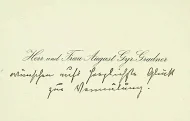 Herr und Frau August Gyr-Gradner
wünschen aufs herzlichste Glück
zur Vermählung.